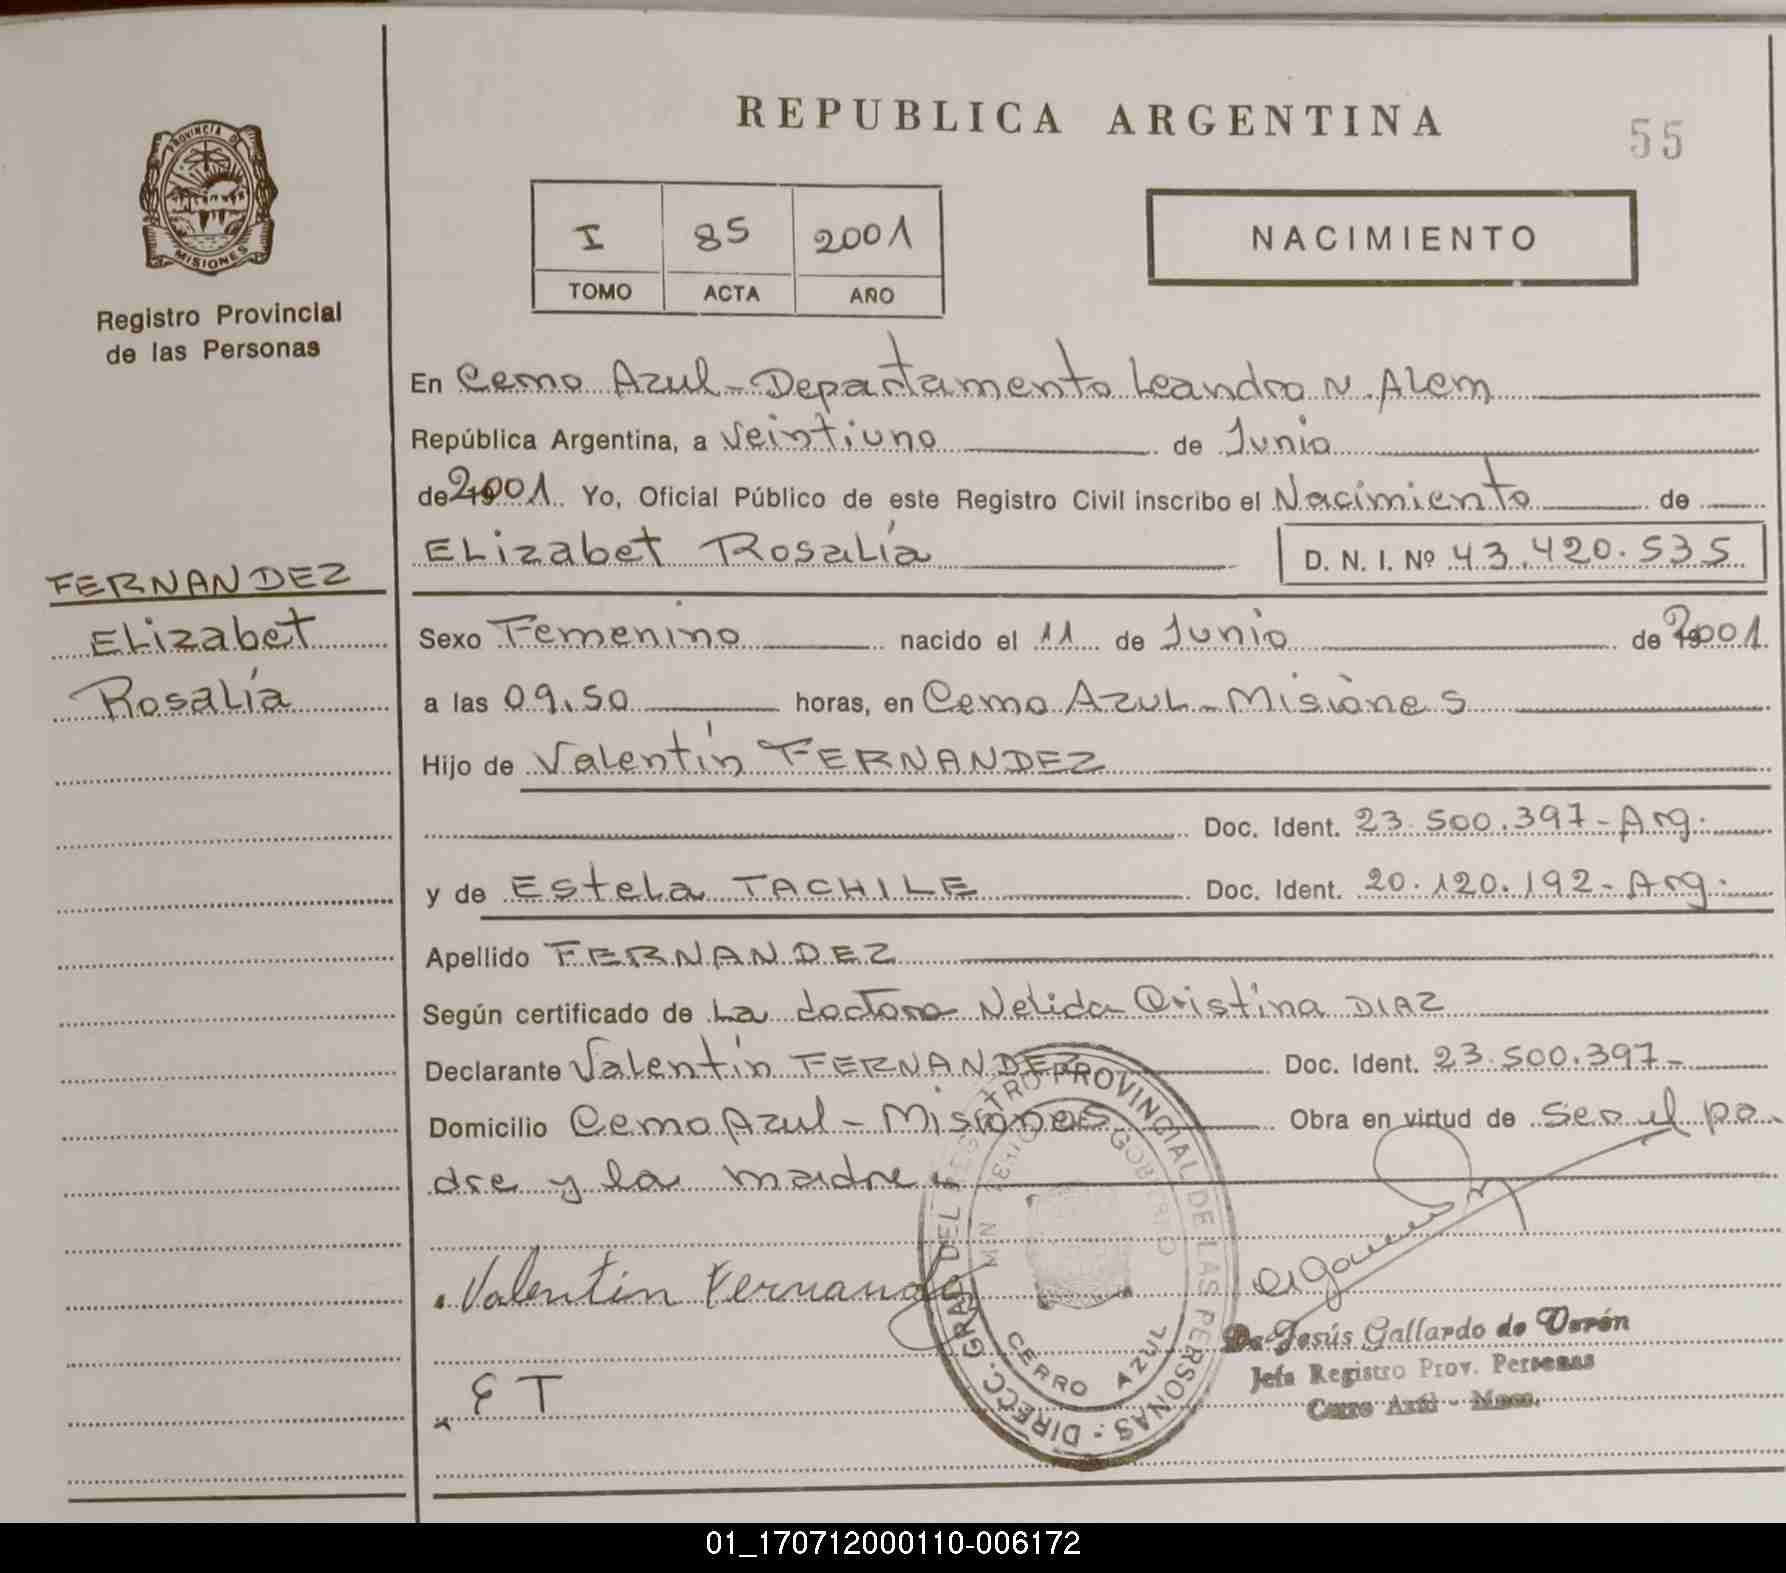 REPUBLICA ARGENTINA
55
PROVINCIA DE
MISIONES
Registro Provincial
de las Personas
I 85 2001
TOMO ACTA AÑO
NACIMIENTO
En Cerro Azul - Departamento Leandro N. Alem
República Argentina, a veintiuno de Junio
de 2001. Yo, Oficial Público de este Registro Civil inscribo el Nacimiento de
Elizabet Rosalía D. N. I. Nº 43.420.535
FERNANDEZ
Elizabet
Rosalía
Sexo Femenino nacido el 11 de Junio de 2001.
a las 09.50 horas, en Cerro Azul - Misiones
Hijo de Valentín FERNANDEZ
Doc. Ident. 23.500.397 - Arg.
y de Estela TACHILE Doc. Ident. 20.120.192 - Arg.
Apellido FERNANDEZ
Según certificado de La doctora Nelida Cristina DIAZ
Declarante Valentín FERNANDEZ Doc. Ident. 23.500.397 -
Domicilio Cerro Azul - Misiones Obra en virtud de ser el pa
dre y la madre
Valentin Fernandez
E T
DIRECC. GRAL DEL REGISTRO PROVINCIAL DE LAS PERSONAS
CERRO AZUL
Jesús Gallardo de
Jefa Registro Prov. Personas
Cerro Azul - Mnes.
01_170712000110-006172